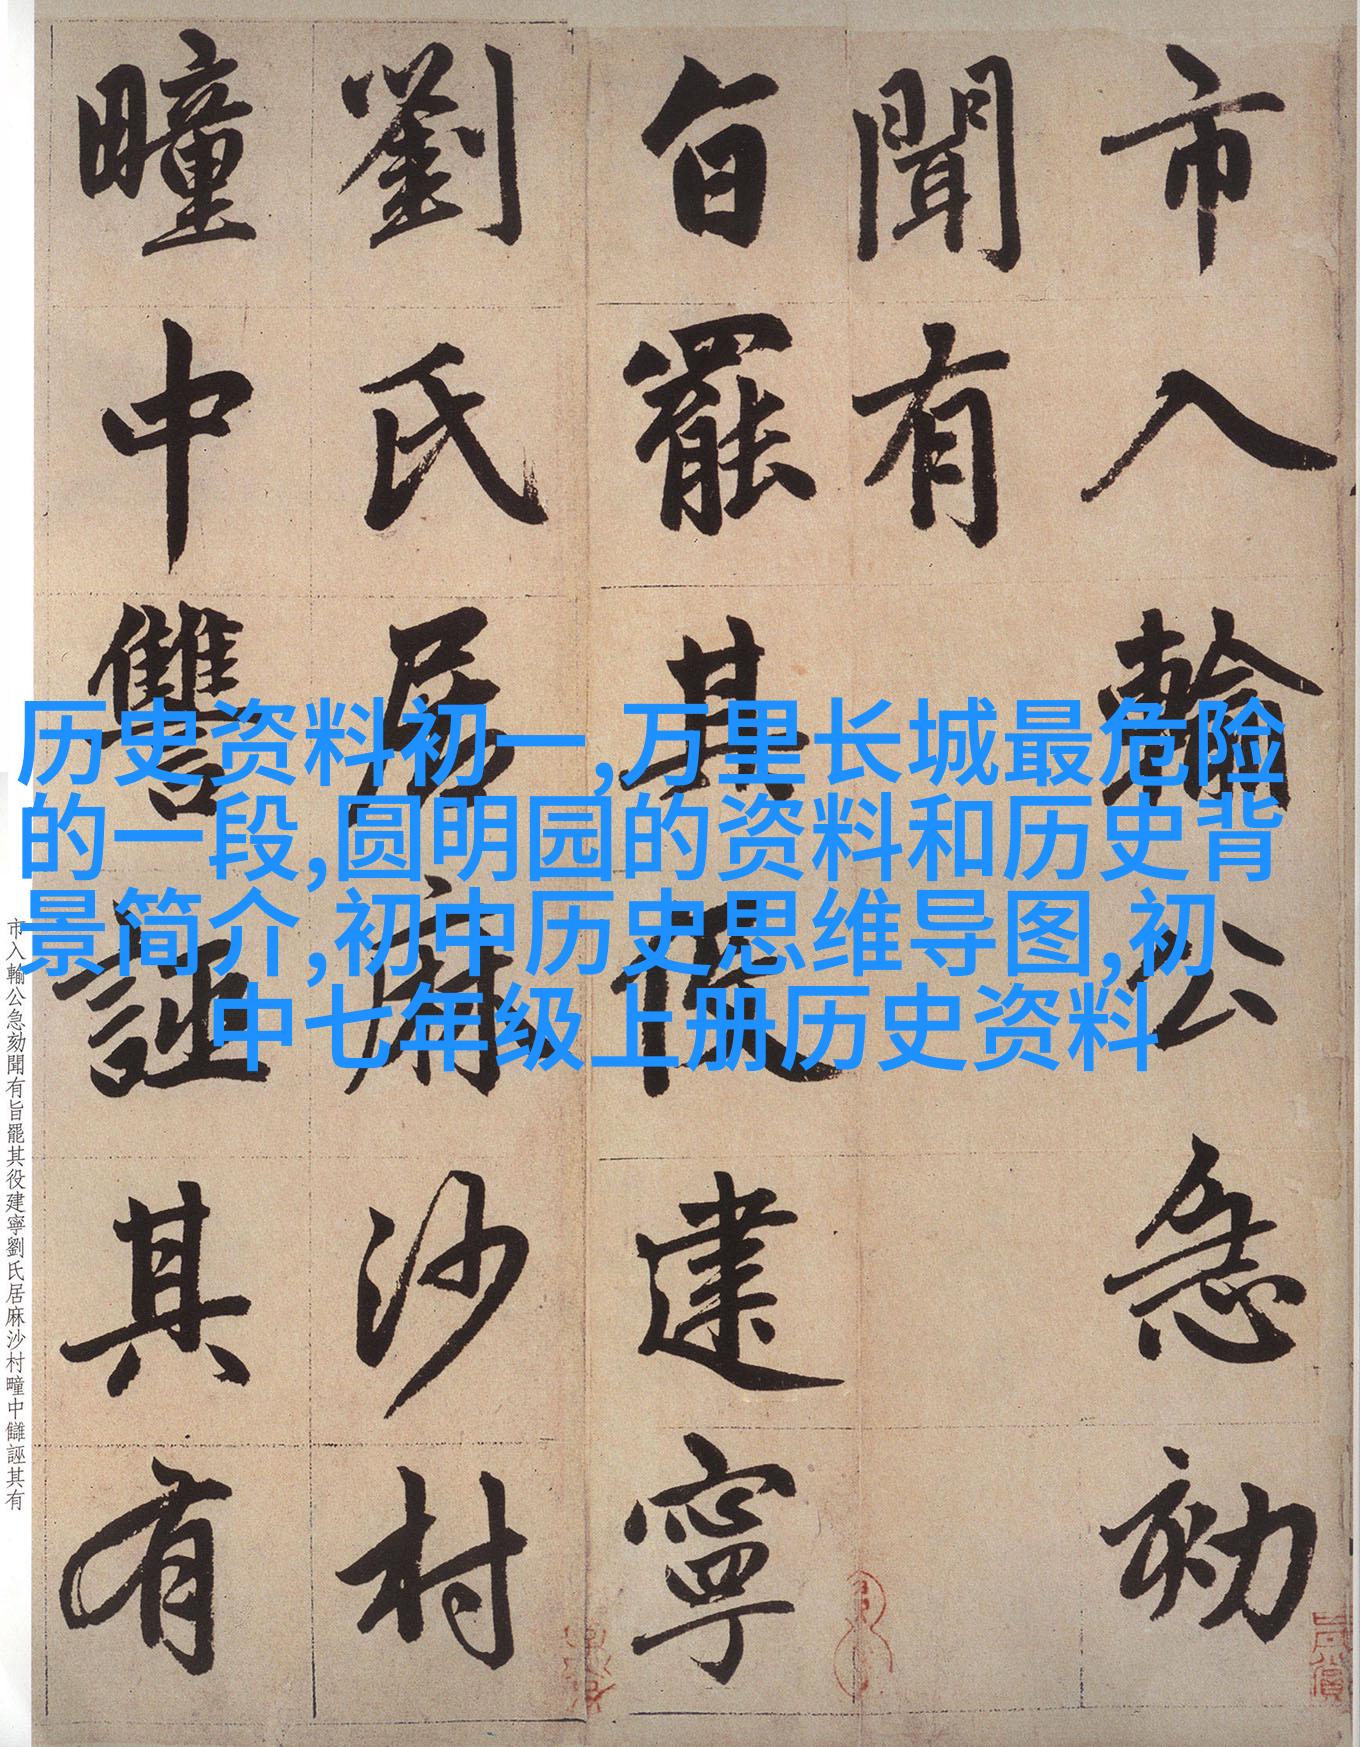 市入輸公急劾
聞有
旨罷其役建寧
劉氏居麻沙村
疃中讐誣其有
历史资料初一,万里长城最危险
的一段,圆明园的资料和历史背
景简介,初中历史思维导图,初
中七年级上册历史资料
市入輸公急劾聞有旨罷其役建寧劉氏居麻沙村疃中讎誣其有